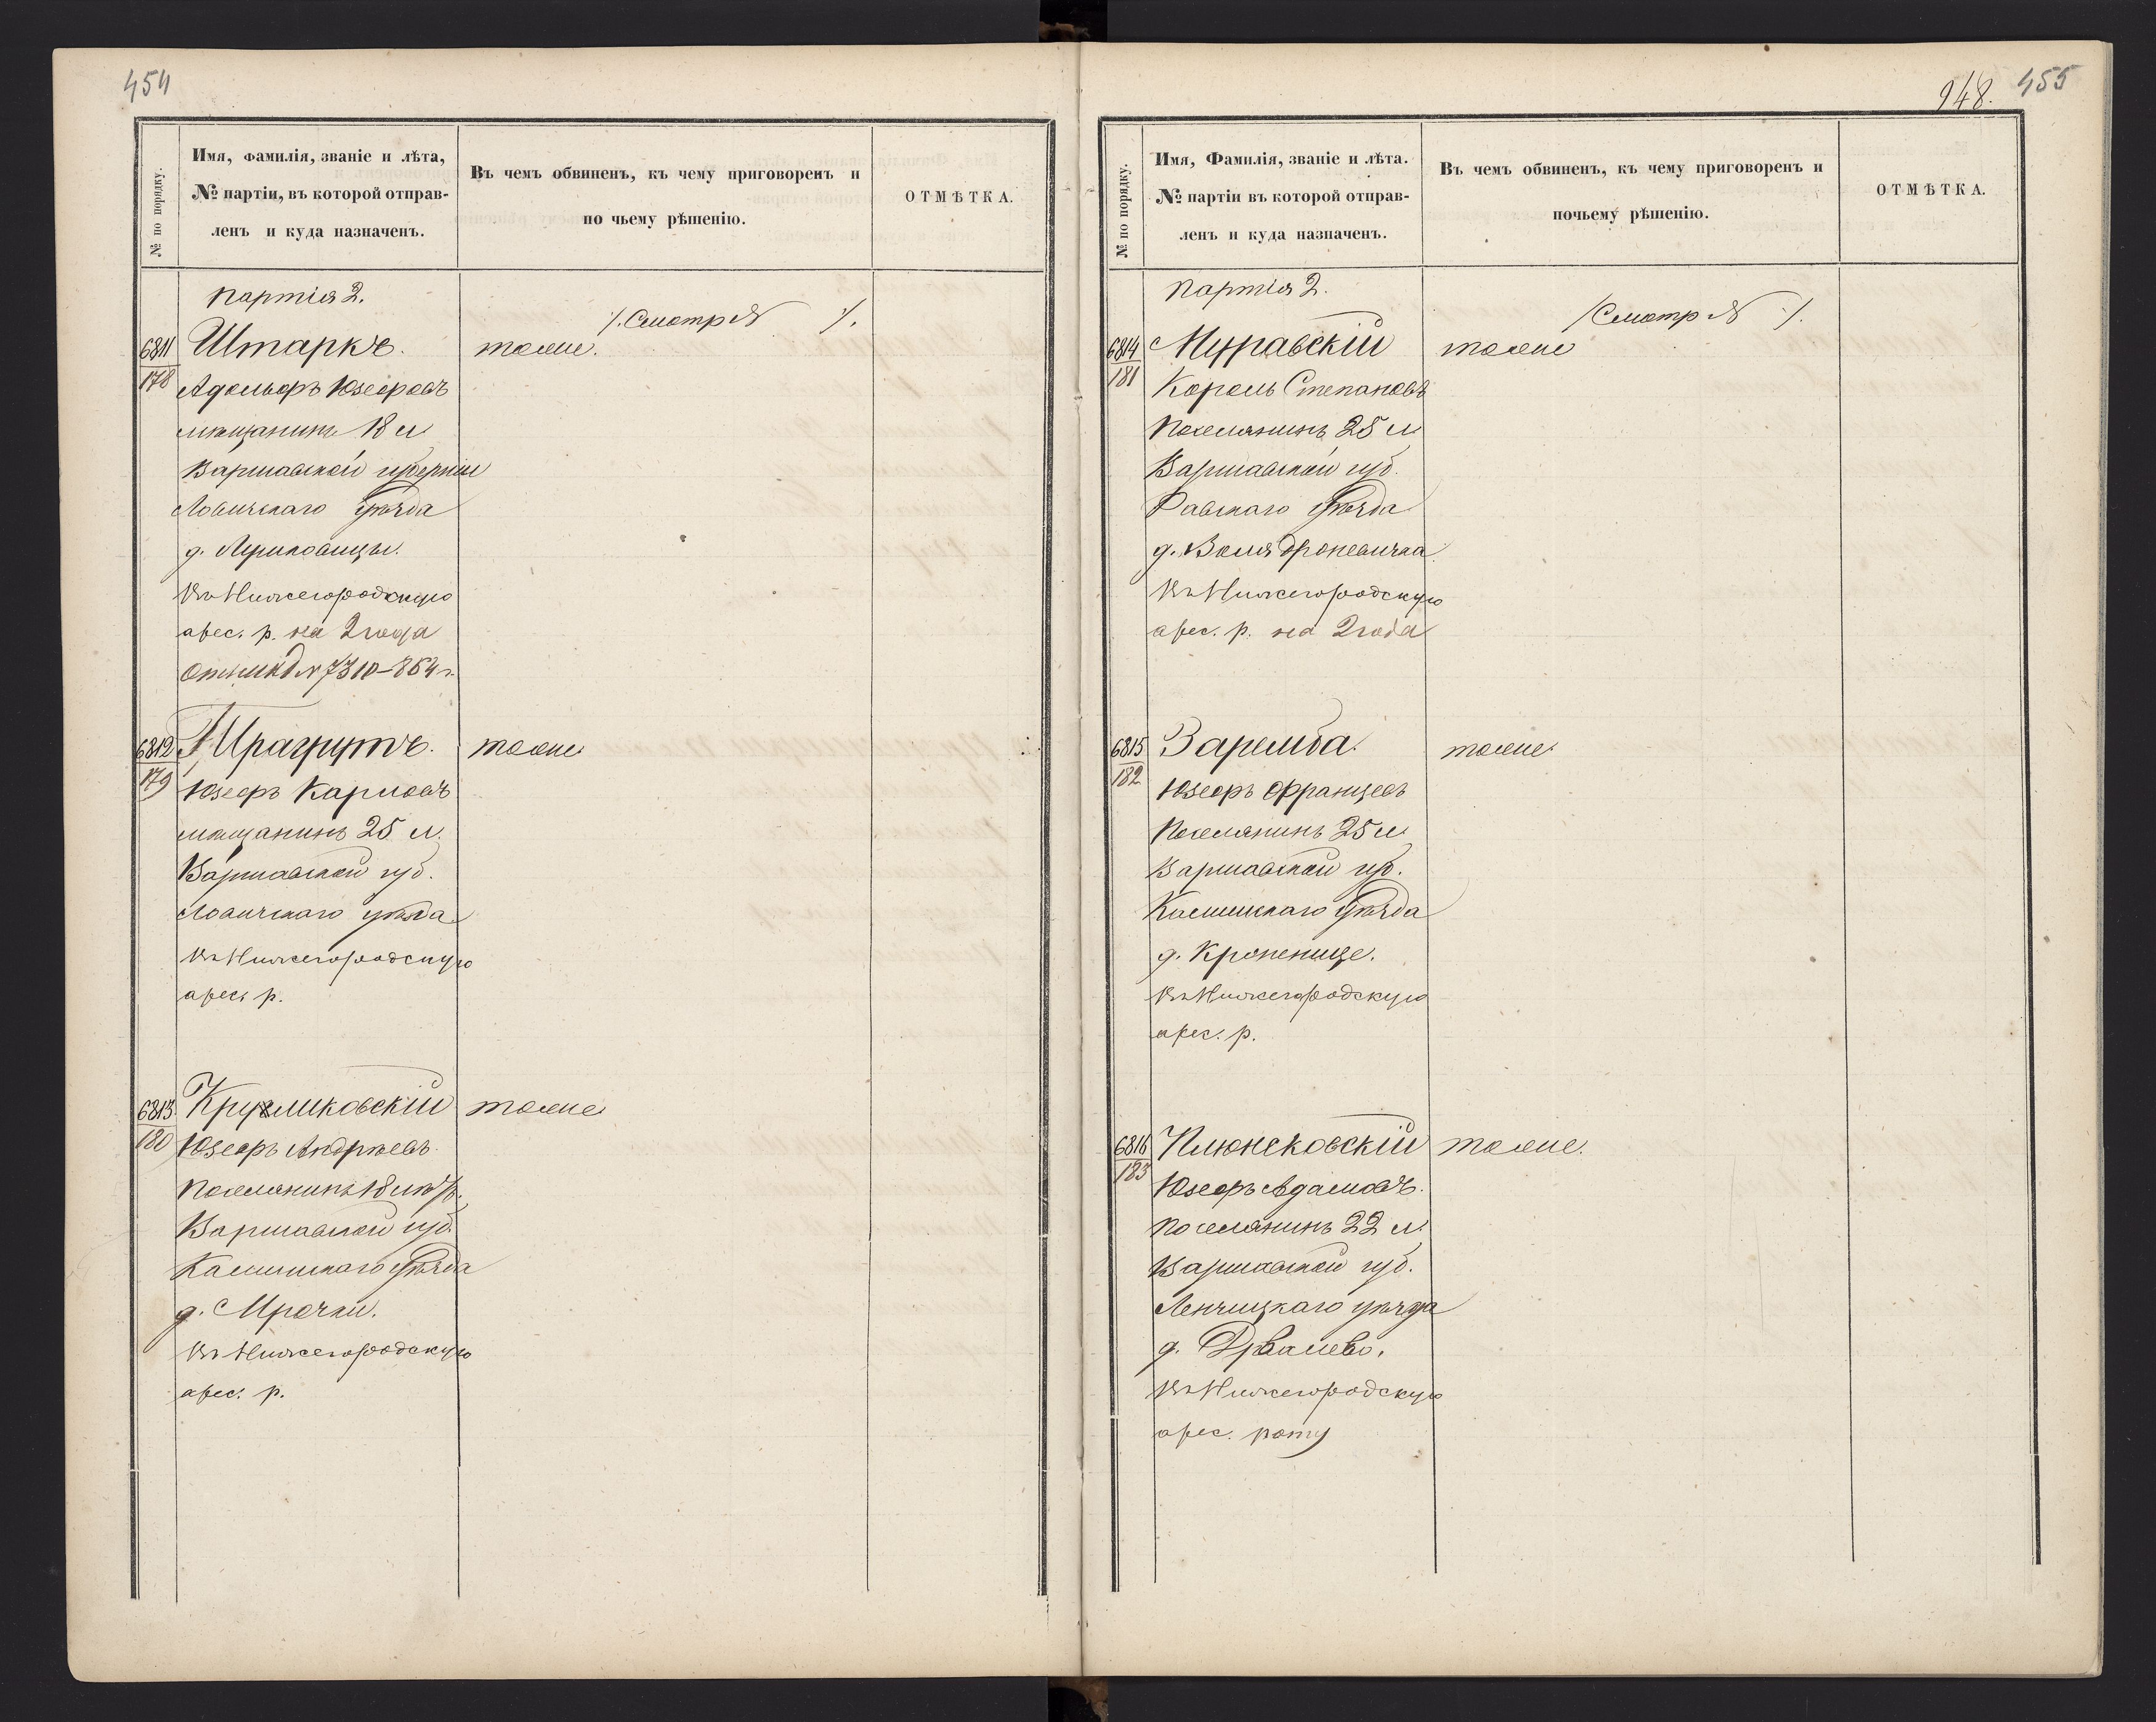 454
№ по порядку.
Имя, фамилія, званіе и лѣта,
№ партіи, въ которой отправ-
ленъ и куда назначенъ.
Въ чемъ обвиненъ, къ чему приговоренъ и
по чьему рѣшенію.
ОТМѢТКА.
партія 2.
/. Смотр № /.
6811
178
Штаркъ.
тоже.
Адольфъ Юзефовъ
мѣщанинъ 18 л
Варшавской губерніи
Ловичскаго уѣзда
д.
Въ Нижегородскую
арес. р. на 2 года
№ 7310-864 г.
6812
179
тоже
Юзефъ Карловъ
мѣщанинъ 25 л.
Варшавской губ.
Ловичскаго уѣзда
Въ Нижегородскую
арес. р.
6813
180
Круликовскій
тоже
Юзефъ Андрѣевъ.
Поселянинъ 18 лѣтъ.
Варшавской губ.
уѣзда
д. Мрочки.
Въ Нижегородскую
арес. р.
948.
455
№ по порядку.
Имя, Фамилія, званіе и лѣта.
№ партіи въ которой отправ-
ленъ и куда назначенъ.
Въ чемъ обвиненъ, къ чему приговоренъ и
почьему рѣшенію.
ОТМѢТКА.
партія 2.
/Смотр № /.
6814
181
Муравскій
тоже
Кароль Степановъ
Поселянинъ 25 л
Варшавской губ.
Равскаго уѣзда
д. Воля
Въ Нижегородскую
арес. р. на 2 года
6815
182
Заремба.
тоже.
Юзефъ Францевъ
Поселянинъ 25 л
Варшавской губ.
уѣзда
д.
Въ Нижегородскую
арес. р.
6816
183
Плюнсковскій
тоже.
Юзефъ Адамовъ.
Поселянинъ 22 л.
Варшавской губ.
Ленчицкаго уѣзда
д.
Въ Нижегородскую
арес. роту